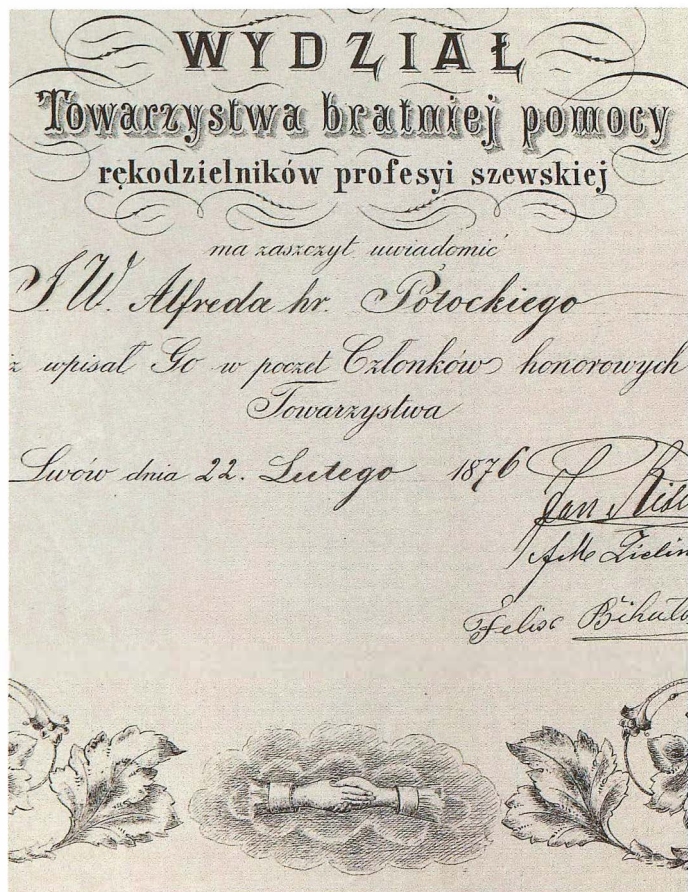 WYDZIAŁ
Towarzystwa bratniej pomocy
rękodzielników profesyi szewskiej
ma zaszczyt uwiadomić
J.W. Alfreda hr. Potockiego
ż wpisał Go w poczet Członków honorowych
Towarzystwa
Lwów dnia 22. Lutego 1876
Jan
Zielin
Felix